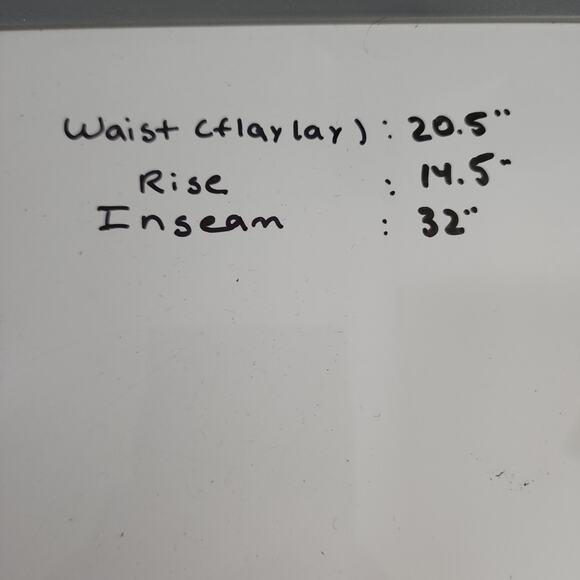 Waist (flaylay) : 20.5"
Rise : 14.5"
Inseam : 32"